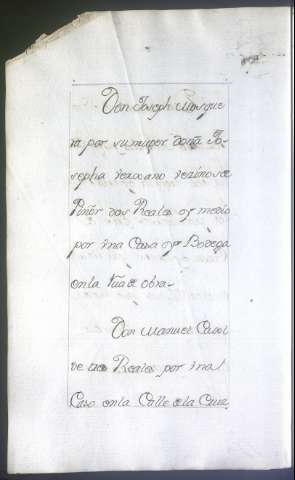 Don Joseph Mosque
ra por su muger doña Jo-
sepha vezino de
dos Reales y medio
por vna Casa y Bodega
en la Rua de obra-
Don Manuel
de tres Reales por vna
Casa en la Calle de la Cruz